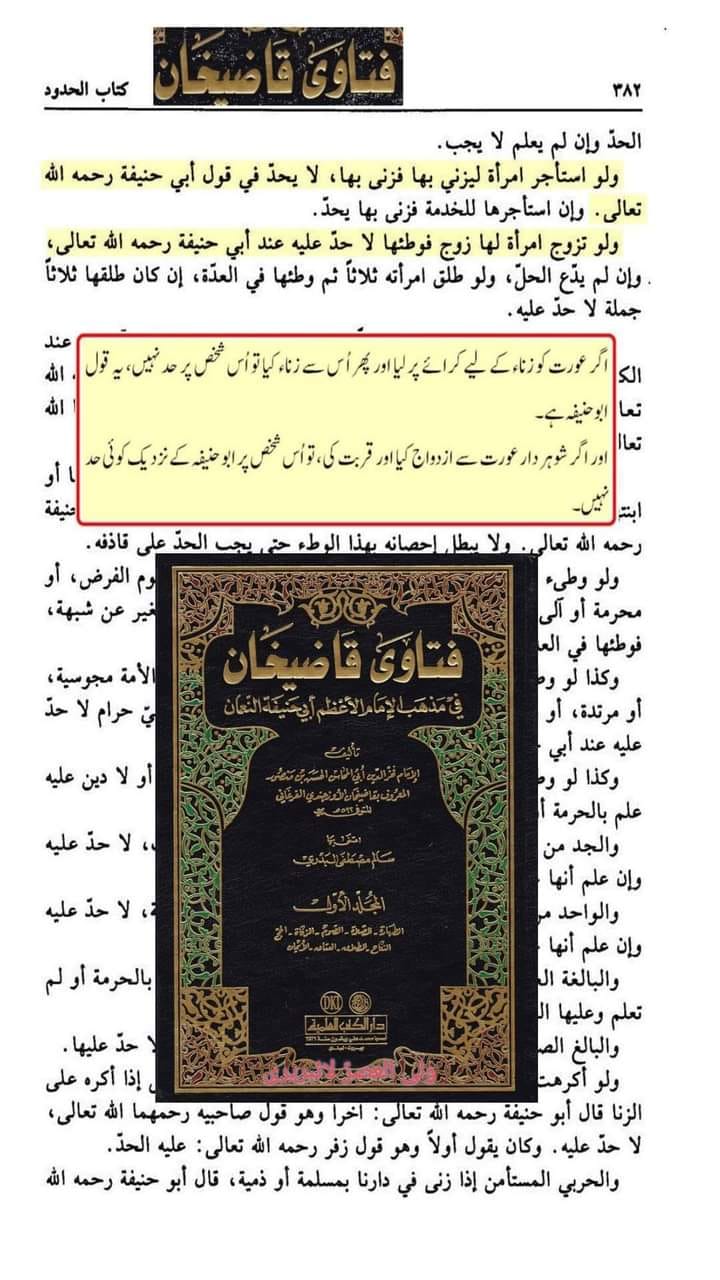 ٣٨٢
فتاوى قاضيخان
كتاب الحدود
الحدّ وإن لم يعلم لا يجب.
ولو استأجر امرأة ليزني بها فزنى بها، لا يحدّ في قول أبي حنيفة رحمه الله
تعالى. وإن استأجرها للخدمة فزنى بها يحدّ.
ولو تزوج امرأة لها زوج فوطئها لا حدّ عليه عند أبي حنيفة رحمه الله تعالى،
وإن لم يدّع الحلّ، ولو طلق امرأته ثلاثاً ثم وطئها في العدّة، إن كان طلقها ثلاثاً
جملة لا حدّ عليه.
عند
الله
الله
اگر عورت کو زناء کے لیے کرائے پر لیا اور پھر اُس سے زناء کیا تو اُس شخص پر حد نہیں، یہ قول
ابو حنیفہ ہے۔
اور اگر شوہر دار عورت سے ازدواج کیا اور قربت کی، تو اُس شخص پر ابو حنیفہ کے نزدیک کوئی حد
نہیں۔
أو
حنيفة
رحمه الله تعالى. ولا يبطل إحصانه بهذا الوطء حتى يجب الحدّ على قاذفه.
ولو وطىء
الفرض، أو
محرمة أو آلى
عن شبهة،
فوطئها في
وكذا لو
الأمة مجوسية،
أو مرتدة، أو
حرام لا حدّ
عليه عند أبي
وكذا لو
أو لا دين عليه
علم بالحرمة
والجد من
لا حدّ عليه
وإن علم أنها
والواحد
لا حدّ عليه
وإن علم أنها
والبالغة
بالحرمة أو لم
تعلم وعليها
والبالغ
لا حدّ عليها.
ولو أكرهت
إذا أكره على
فتاوى قاضيخان
في مذهب الإمام الأعظم أبي حنيفة النعمان
تأليف
الإمام فخر الدين أبي المحاسن الحسن بن منصور
المعروف بقاضيخان الأوزجندي الفرغاني
المتوفى ٥٩٢ هـ
اعتنى بها
سالم مصطفى البدري
المجلد الأول
الطهارة - الصلاة - الصوم - الزكاة - الحج
النكاح - الطلاق - العتاق - الأيمان
DKI
دار الكتب العلمية
الزنا قال أبو حنيفة رحمه الله تعالى: آخراً وهو قول صاحبيه رحمهما الله تعالى،
لا حدّ عليه. وكان يقول أولاً وهو قول زفر رحمه الله تعالى: عليه الحدّ.
والحربي المستأمن إذا زنى في دارنا بمسلمة أو ذمية، قال أبو حنيفة رحمه الله